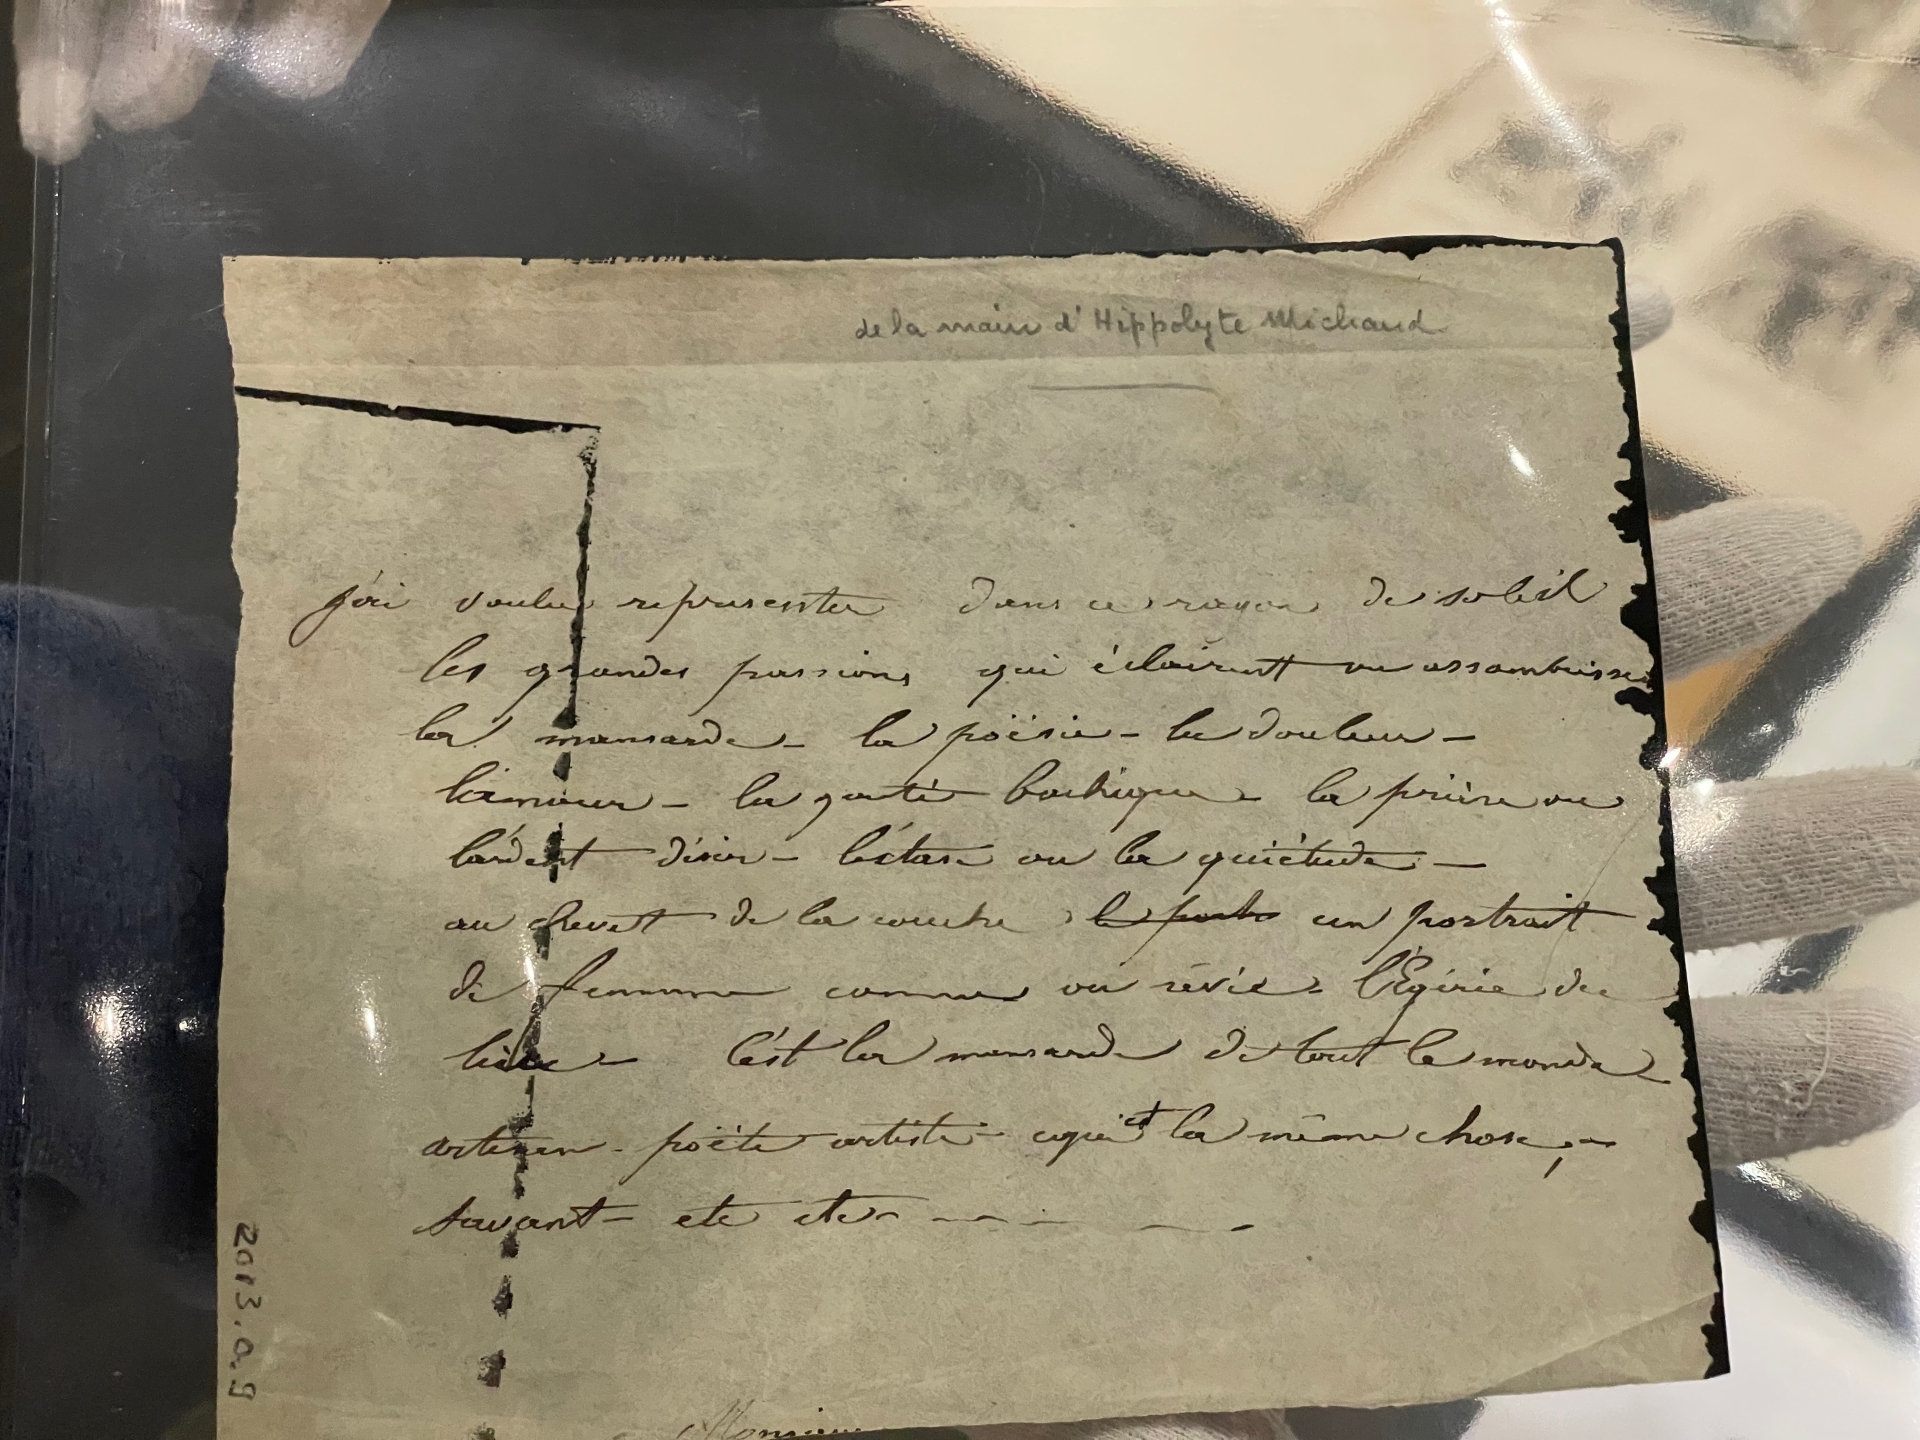 de la main d'Hippolyte Michaud
j'ai voulu representer dans ce rayon de soleil
les grandes passions qui éclairent ou assombrisse
la mansarde - la poësie - la douleur -
l'amour - la gaité bachique - la prière ou
l'ardent désir - l'éxtase ou la quiétude -
au chevet de la couche le porte un portrait
de femme comme on rêvée - l'Egérie du
lieu - C'est la mansarde de tout le monde -
artisan - poëte artiste - ce qui est la même chose, -
savant - etc etc - - - - - -
Monsieur
2013.0.9